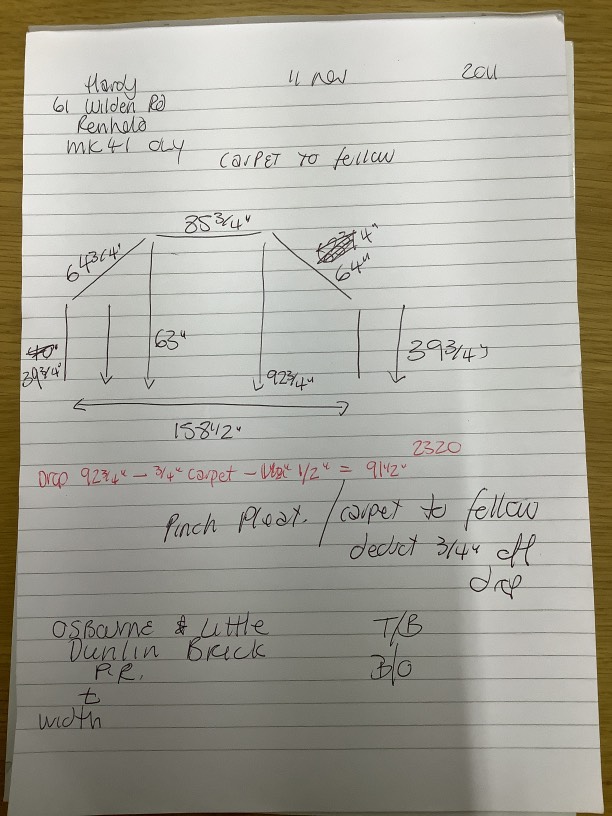 Hardy 11 Nov 2011
61 Wilden Rd
Renhold
MK41 0LY
CARPET TO fellow
85 3/4"
64 3/4"
64"
63"
39 3/4"
92 3/4"
39 3/4"
158 1/2"
2320
Drop 92 3/4" - 3/4" carpet - 1/2" = 91 1/2"
Pinch Pleat. / carpet to fellow
deduct 3/4" off
drop
OSBORNE & Little T/B
Dunlin Brick B/O
P.R.
t
width